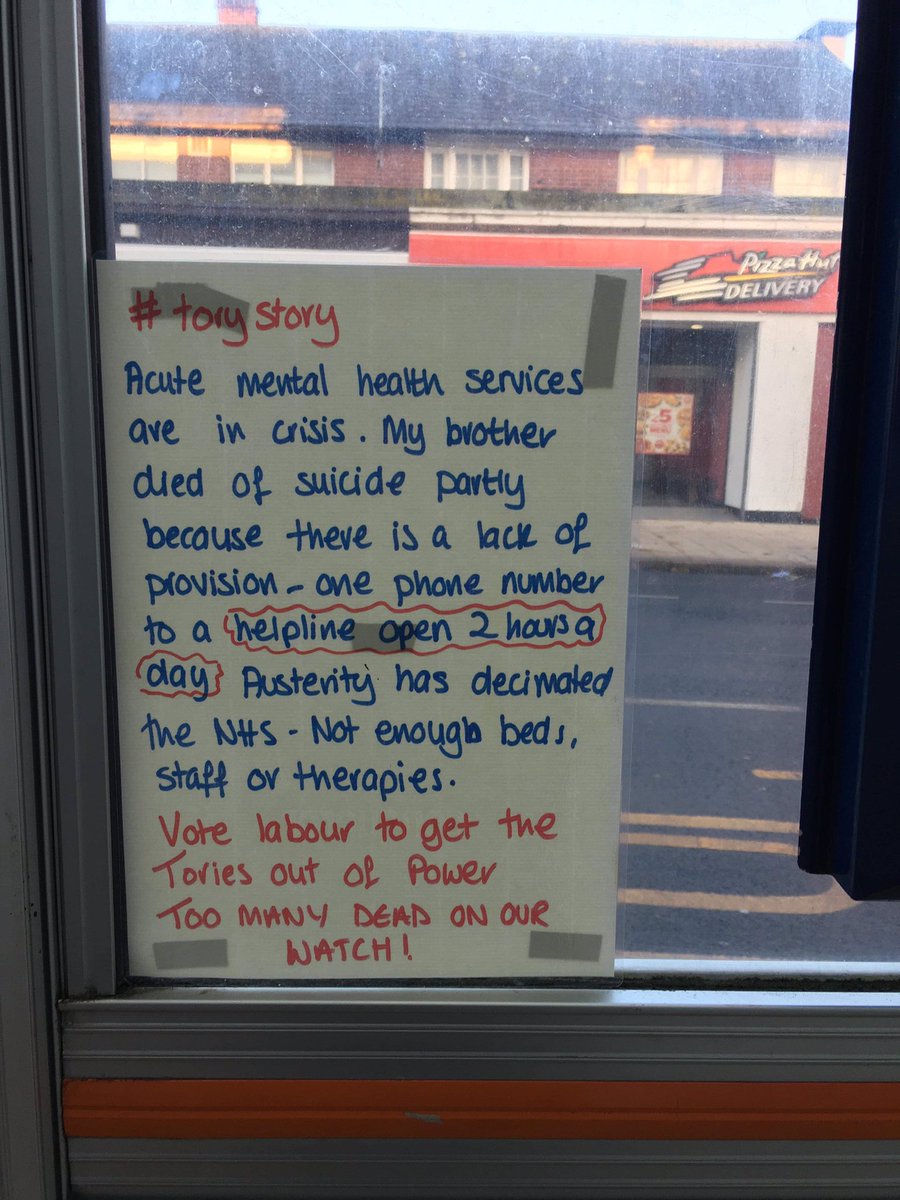 Pizza Hut
DELIVERY
£5
MENU
# tory story
Acute mental health services
are in crisis. My brother
died of suicide partly
because there is a lack of
provision - one phone number
to a helpline open 2 hours a
day Austerity has decimated
the NHS - Not enough beds,
staff or therapies.
Vote labour to get the
Tories out of Power
TOO MANY DEAD ON OUR
WATCH!